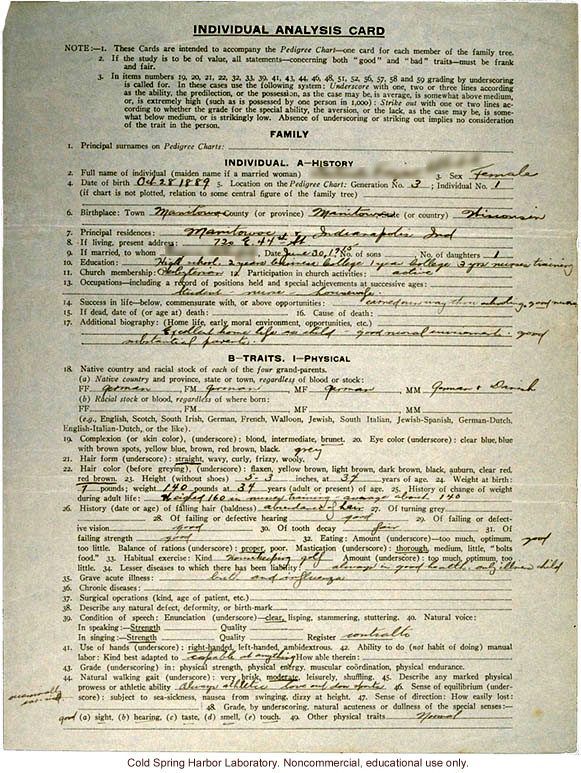 INDIVIDUAL ANALYSIS CARD
NOTE:—1. These Cards are intended to accompany the Pedigree Chart—one card for each member of the family tree.
2. If the study is to be of value, all statements—concerning both "good" and "bad" traits—must be frank
and fair.
3. In items numbered 19, 20, 21, 22, 32, 33, 39, 41, 43, 44, 46, 48, 51, 52, 56, 57, 58 and 59 grading by underscoring
is called for. In these cases use the following system: Underscore with one, two or three lines according
as the ability, the predilection, or the possession, as the case may be, is average, is somewhat above medium,
or is extremely high (such as is possessed by one person in 1,000): Strike out with one or two lines ac-
cording to whether the grade for the special ability, the aversion, or the lack, as the case may be, is some-
what below medium, or is strikingly low. Absence of underscoring or striking out implies no consideration
of the trait in the person.
FAMILY
1. Principal surnames on Pedigree Charts:
INDIVIDUAL. A—HISTORY
2. Full name of individual (maiden name if a married woman) 3. Sex Female
4. Date of birth Oct 28 1889 5. Location on the Pedigree Chart: Generation No. 3; Individual No. 1
(if chart is not plotted, relation to some central figure of the family tree)
6. Birthplace: Town Manitowoc County (or province) Manitowoc State (or country) Wisconsin
7. Principal residences: Manitowoc & Indianapolis Ind
8. If living, present address: 720 E. 44th St
9. If married, to whom Date June 30, No. of sons No. of daughters 1
10. Education: High school, 2 years College 1 year College 3 yrs nurses training
11. Church membership: 12. Participation in church activities: active
13. Occupations—including a record of positions held and special achievements at successive ages:
Student - nurse - housewife
14. Success in life—below, commensurate with, or above opportunities: Earned own way thru
15. If dead, date (or age at) death: 16. Cause of death:
17. Additional biography: (Home life, early moral environment, opportunities, etc.)
Excellent home life as child - good moral environment - good
substantial parents.
B—TRAITS. I—PHYSICAL
18. Native country and racial stock of each of the four grand-parents.
(a) Native country and province, state or town, regardless of blood or stock:
FF German FM German MF German MM German & Danish
(b) Racial stock or blood, regardless of where born:
FF FM MF MM
(e.g., English, Scotch, South Irish, German, French, Walloon, Jewish, South Italian, Jewish-Spanish, German-Dutch,
English-Italian-Dutch, or the like).
19. Complexion (or skin color), (underscore): blond, intermediate, brunet. 20. Eye color (underscore): clear blue, blue
with brown spots, yellow blue, brown, red brown, black. grey
21. Hair form (underscore): straight, wavy, curly, frizzy, wooly.
22. Hair color (before greying), (underscore): flaxen, yellow brown, light brown, dark brown, black, auburn, clear red,
red brown. 23. Height (without shoes) 5-3 inches, at 37 years of age. 24. Weight at birth:
9 pounds; weight 140 pounds at 37 years (adult or present) of age. 25. History of change of weight
during adult life: Weighed 160 in nurses training - average about 140
26. History (date or age) of falling hair (baldness) abundance of hair 27. Of turning grey
28. Of failing or defective hearing good 29. Of failing or defect-
ive vision good 30. Of tooth decay fair 31. Of
failing strength good 32. Eating: Amount (underscore)—too much, optimum, good
too little. Balance of rations (underscore): proper, poor. Mastication (underscore): thorough, medium, little, "bolts
food." 33. Habitual exercise: Kind housekeeping golf Amount (underscore): top much, optimum, too
little. 34. Lesser diseases to which there has been liability: always in good health, only illness child
35. Grave acute illness: birth and influenza
36. Chronic diseases:
37. Surgical operations (kind, age of patient, etc.)
38. Describe any natural defect, deformity, or birth-mark
39. Condition of speech: Enunciation (underscore)—clear, lisping, stammering, stuttering. 40. Natural voice:
In speaking:—Strength Quality
In singing:—Strength Quality Register contralto
41. Use of hands (underscore): right-handed, left-handed, ambidextrous. 42. Ability to do (not habit of doing) manual
labor: Kind best adapted to capable of anything How able therein:
43. Grade (underscoring) in: physical strength, physical energy, muscular coördination, physical endurance.
44. Natural walking gait (underscore): very brisk, moderate, leisurely, shuffling. 45. Describe any marked physical
prowess or athletic ability always athletic 46. Sense of equilibrium (under-
score): subject to sea-sickness, nausea from swinging, dizzy at height. 47. Sense of direction: How easily lost:
48. Grade, by underscoring, natural acuteness or dullness of the special senses:—
good (a) sight, (b) hearing, (c) taste, (d) smell, (e) touch. 49. Other physical traits Normal
Cold Spring Harbor Laboratory. Noncommercial, educational use only.